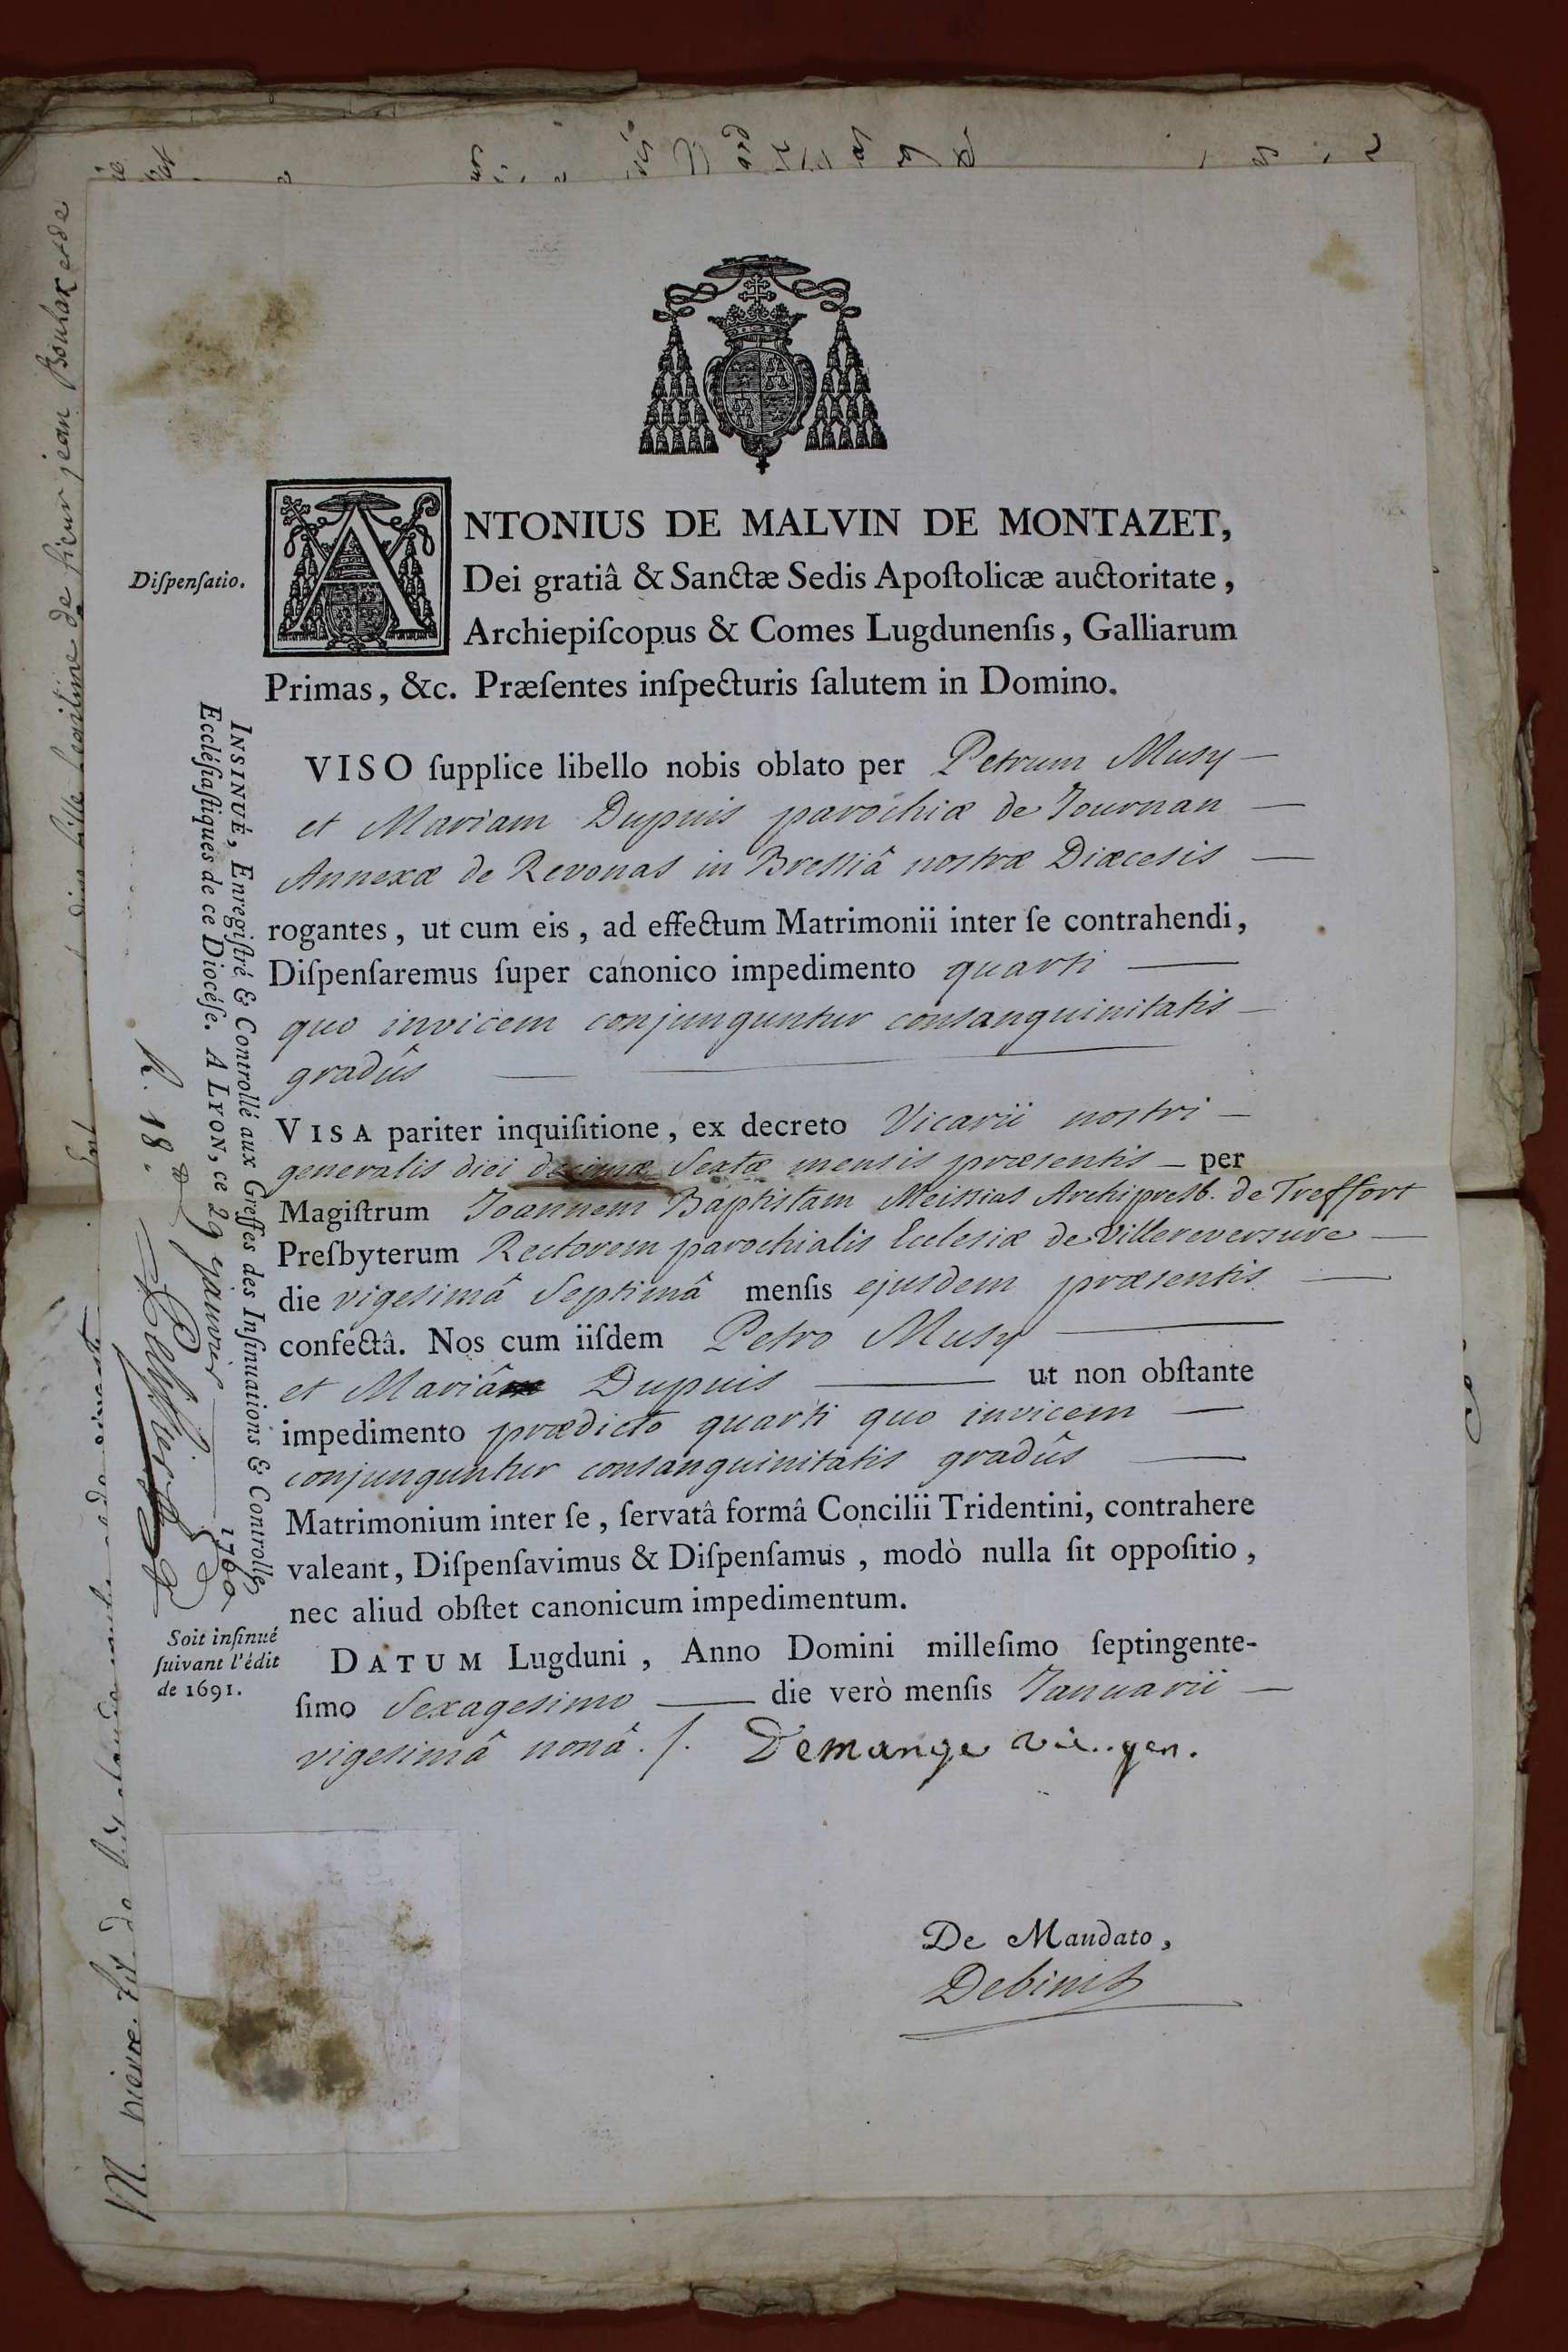 Diſpenſatio.
ANTONIUS DE MALVIN DE MONTAZET,
Dei gratiâ & Sanctæ Sedis Apoſtolicæ auctoritate,
Archiepiſcopus & Comes Lugdunenſis, Galliarum
Primas, &c. Præſentes inſpecturis ſalutem in Domino.
VISO ſupplice libello nobis oblato per Petrum Musy —
et Mariam Dupuis parochiæ de Journan —
Annexæ de Revonas in Bressiâ nostræ Diæcesis —
rogantes, ut cum eis, ad effectum Matrimonii inter ſe contrahendi,
Diſpenſaremus ſuper canonico impedimento quarti —
quo invicem conjunguntur consanguinitatis —
gradûs —
VISA pariter inquiſitione, ex decreto Vicarii nostri —
generalis diei decimæ Sextæ mensis præsentis — per
Magiſtrum Joannem Baptistam Meissias Archipresb. de Treffort
Preſbyterum Rectorem parochialis Ecclesiæ de Villereversure —
die vigesimâ Septimâ menſis ejusdem præsentis —
confectâ. Nos cum iiſdem Petro Musy —
et Mariâ Dupuis — ut non obſtante
impedimento prædicto quarti quo invicem —
conjunguntur consanguinitatis gradûs —
Matrimonium inter ſe, ſervatâ formâ Concilii Tridentini, contrahere
valeant, Diſpenſavimus & Diſpenſamus, modò nulla ſit oppoſitio,
nec aliud obſtet canonicum impedimentum.
DATUM Lugduni, Anno Domini milleſimo ſeptingente-
ſimo Sexagesimo — die verò menſis Januarii —
vigesimâ nonâ ./. Demange vic. gen.
De Mandato,
Debinis
INSINUÉ, Enregiſtré & Controllé aux Greffes des Inſinuations & Controlle
Eccléſiaſtiques de ce Diocéſe. A LYON, ce 29 janvier — 1760
R. 18.
Soit inſinué
ſuivant l'édit
de 1691.
fille legitime de sieur jean Boular et de